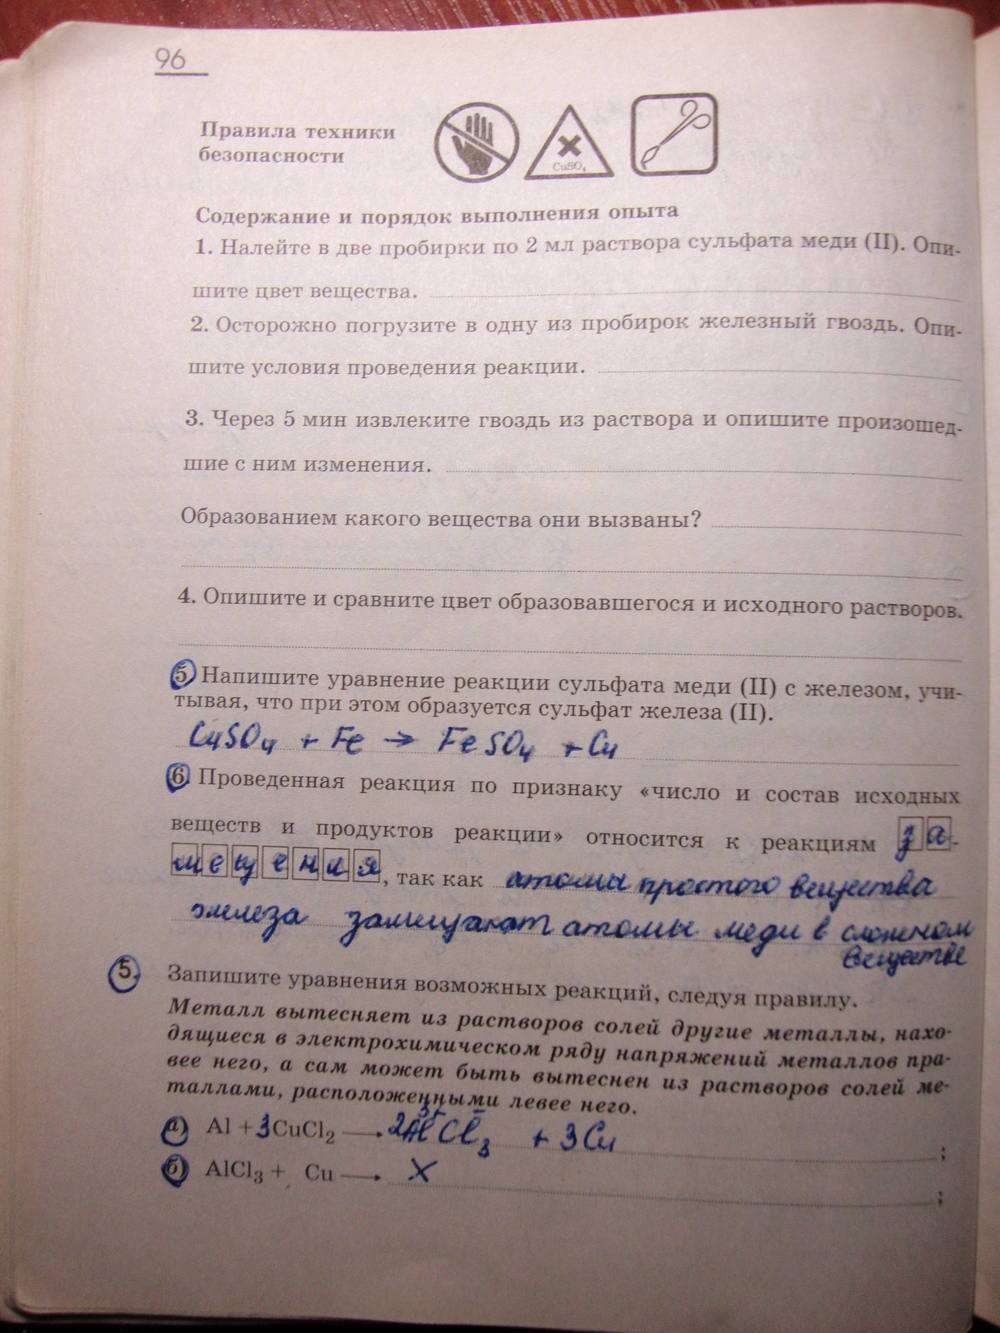 96
Правила техники
безопасности
CuSO₄
Содержание и порядок выполнения опыта
1. Налейте в две пробирки по 2 мл раствора сульфата меди (II). Опи-
шите цвет вещества.
2. Осторожно погрузите в одну из пробирок железный гвоздь. Опи-
шите условия проведения реакции.
3. Через 5 мин извлеките гвоздь из раствора и опишите произошед-
шие с ним изменения.
Образованием какого вещества они вызваны?
4. Опишите и сравните цвет образовавшегося и исходного растворов.
5. Напишите уравнение реакции сульфата меди (II) с железом, учи-
тывая, что при этом образуется сульфат железа (II).
CuSO₄ + Fe → FeSO₄ + Cu
6. Проведенная реакция по признаку «число и состав исходных
веществ и продуктов реакции» относится к реакциям за-
мещения, так как атомы простого вещества
железа замещают атомы меди в сложном
веществе
5. Запишите уравнения возможных реакций, следуя правилу.
Металл вытесняет из растворов солей другие металлы, нахо-
дящиеся в электрохимическом ряду напряжений металлов пра-
вее него, а сам может быть вытеснен из растворов солей ме-
таллами, расположенными левее него.
а) Al + 3CuCl₂ → 2AlCl₃ + 3Cu ;
б) AlCl₃ + Cu → X ;